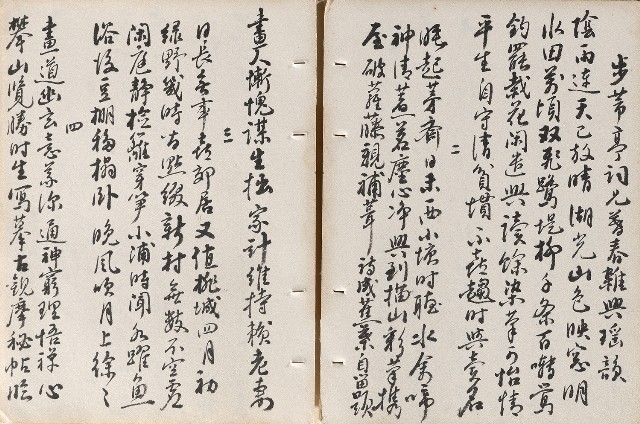 步芾亭詞兄暮春雜興瑤韻
陰雨連天已放晴湖光山色映窓明
水田万頃双飛鷺堤柳千条百囀鶯
釣罷栽花閑遣興讀餘染筆可怡情
平生自守清貧慣不喜趨時與賣名
二
睡起茅齋日未西小窗時聽水禽啼
神清煮茗塵心净興到描山彩筆携
屋破蘿藤親補葺詩成蕉葉自留題
畫人慚愧謀生拙家計維持賴老妻
三
日長無事喜郊居又值桃城四月初
綠野幾時皆點綴新村無數不空虛
閑庭靜檢離穿笋小浦時聞水躍魚
浴後豆棚移榻卧晚風吹月上徐々
四
畫道幽玄意義深通神窮理悟禪心
攀山覽勝時生寫摹古觀摩秘帖臨